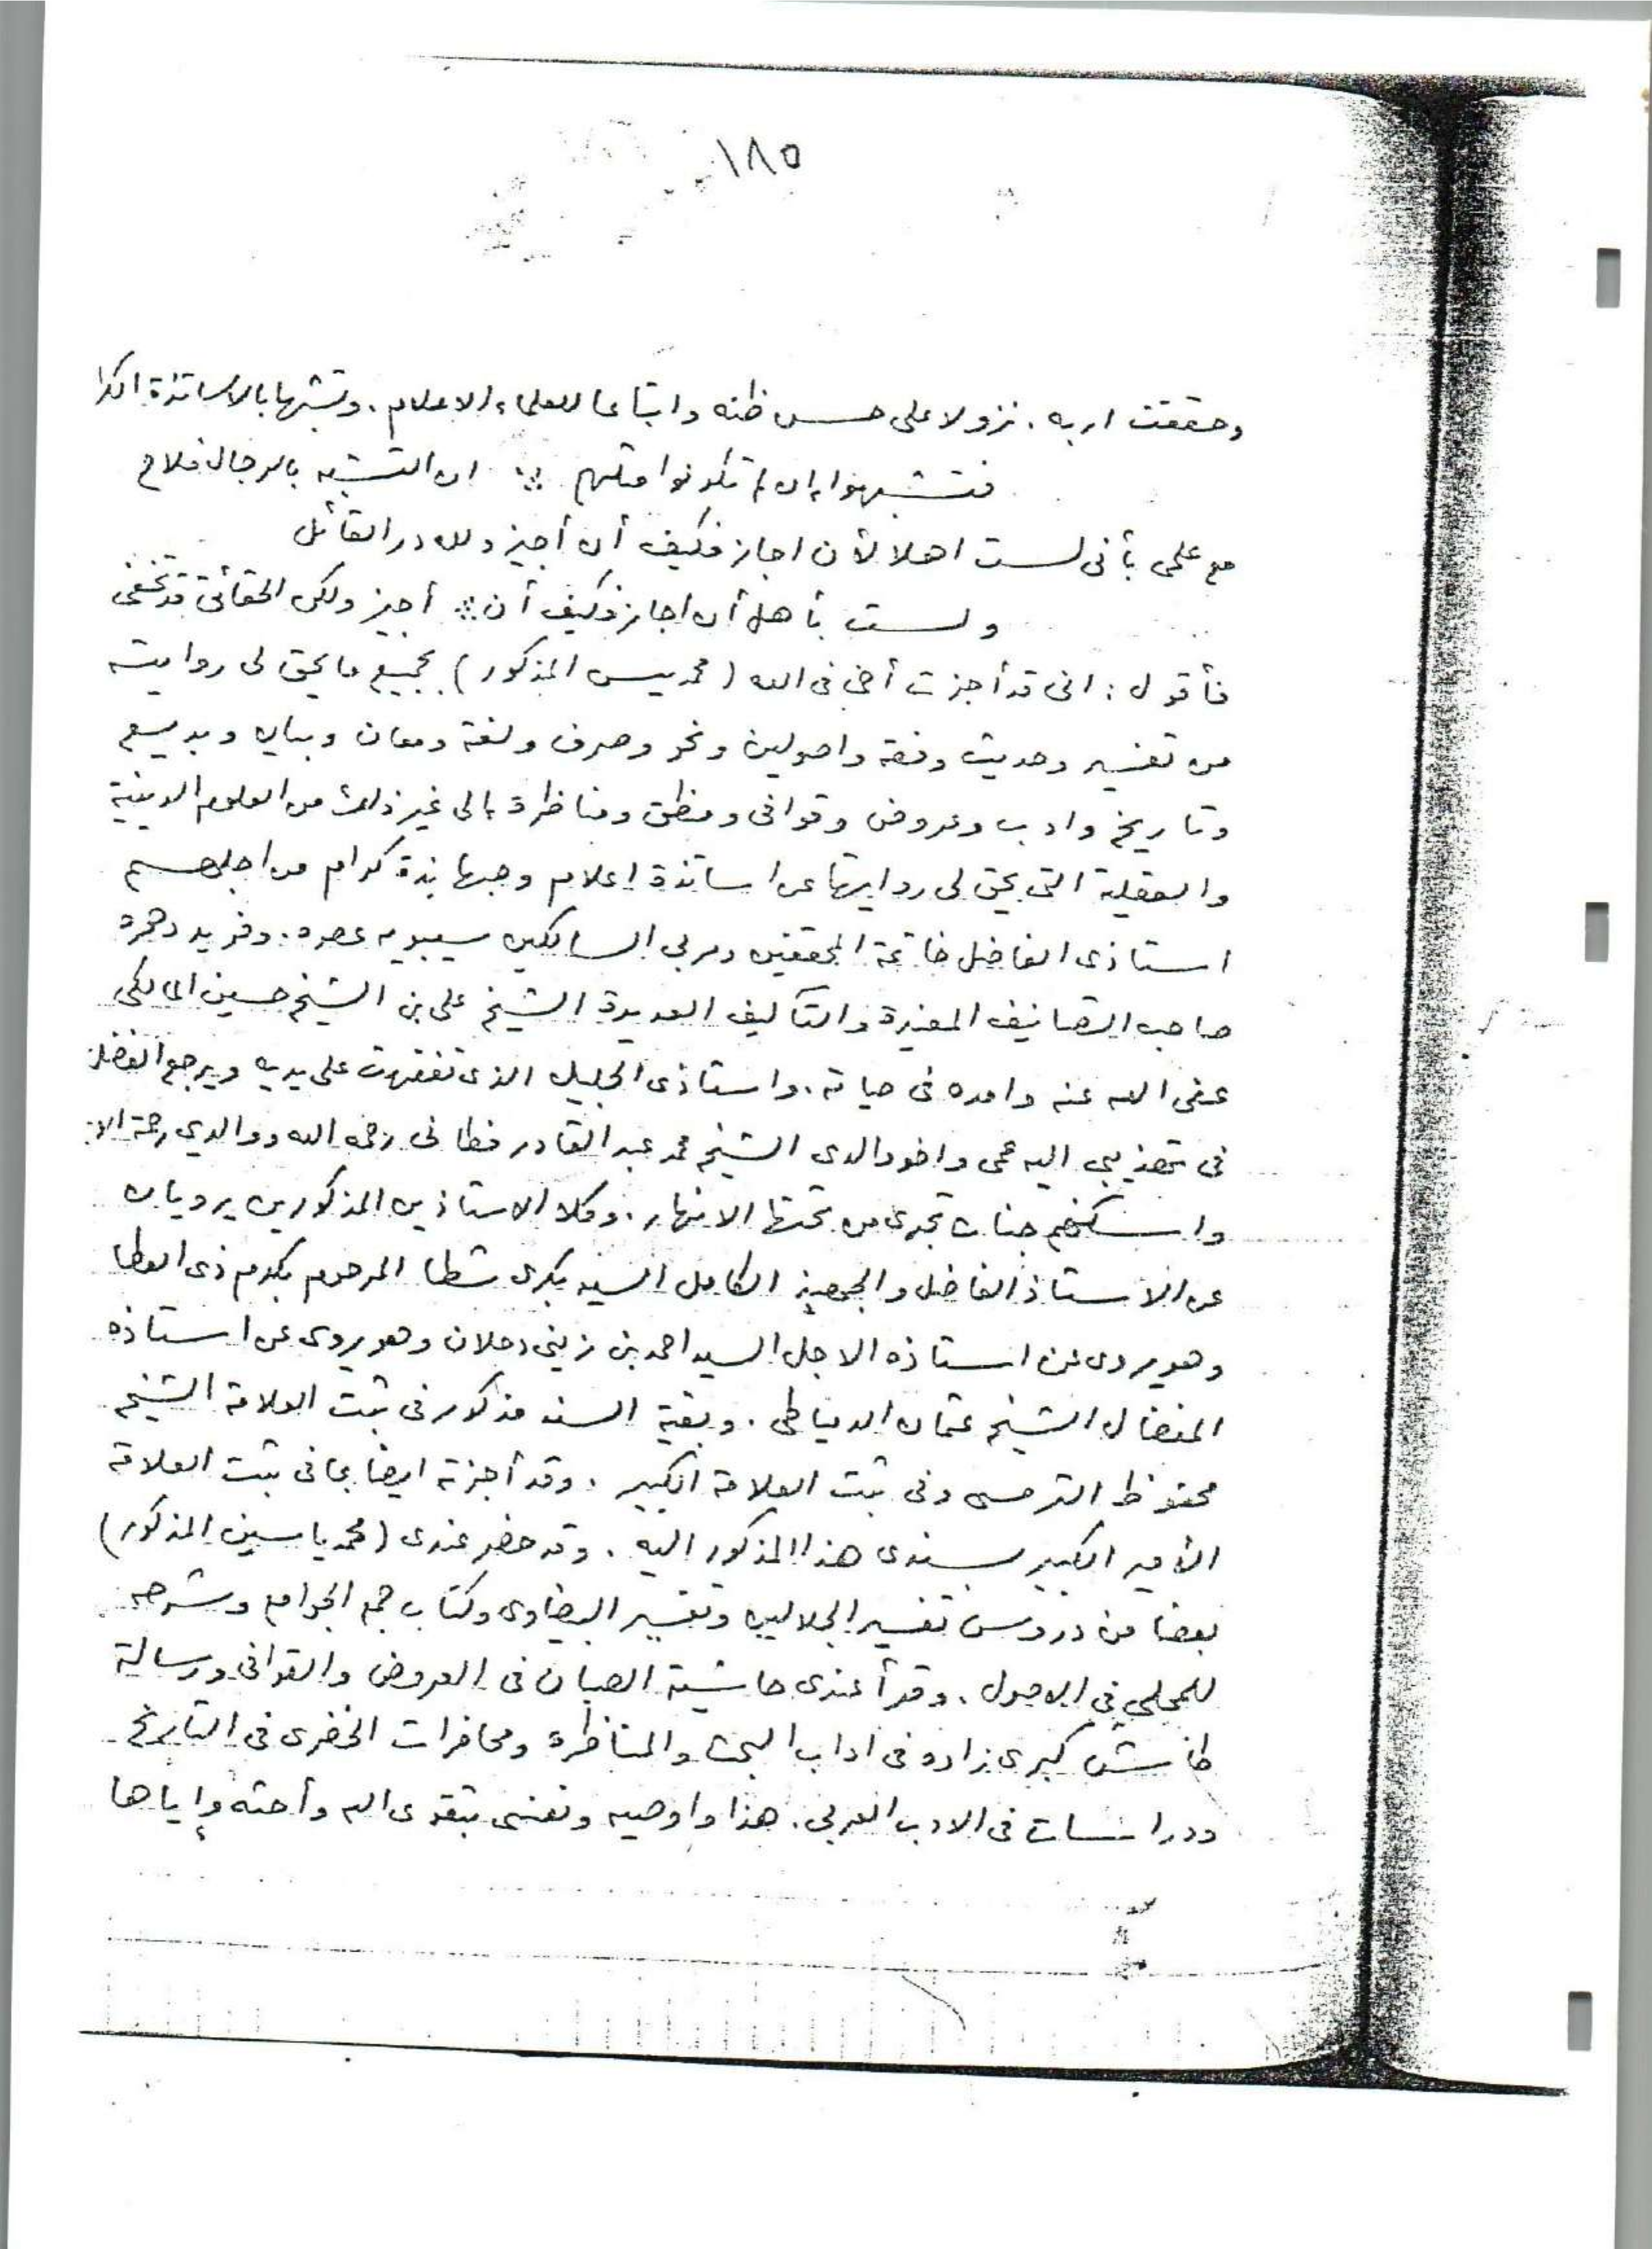 ١٨٥
وحققت اربه . نزولا على حسن ظنه واتباعا للعلماء الاعلام . وتشبها بالاساتذة الكرا
فتشبهوا ان لم تكونوا مثلهم ∴ ان التشبه بالرجال فلاح
مع علمى بأنى لست اهلا لأن اجاز فكيف أن أجيز ولله در القائل
ولست بأهل أن أجاز فكيف أن ∴ أجيز ولكن الحقائق قد تخفى
فأقول : انى قد أجزت أخى فى الله ( محمد يس المذكور ) بجميع ما يحق لى روايته
من تفسير وحديث وفقه واصولين ونحو وصرف ولغة ومعان وبيان وبديع
وتاريخ وادب وعروض وقوافى ومنطق ومناظرة الى غير ذلك من العلوم الدينية
والعقلية التى يحق لى روايتها عن اساتذة اعلام وجهابذة كرام من اجلهم
استاذى الفاضل خاتمة المحققين ومربى السالكين سيبويه عصره . وفريد دهره
صاحب التصانيف المفيدة والتآليف العديدة الشيخ على بن الشيخ حسين المالكى
عفى الله عنه وامده فى حياته . واستاذى الجليل الذى تفقهت على يديه ويرجع الفضل
فى تهذيبى اليه عمى واخو والدى الشيخ محمد عبد القادر فطانى رحمه الله ووالدي رحمة الا
واسكنهم جنات تجرى من تحتها الانهار . وكلا الاستاذين المذكورين يرويان
عن الاستاذ الفاضل والجهبذ الكامل السيد بكرى شطا المرحوم بكرم ذى العطا
وهو يروى عن استاذه الاجل السيد احمد بن زينى دحلان وهو يروى عن استاذه
المفضال الشيخ عثمان الدمياطى . وبقية السند مذكور فى ثبت العلامة الشيخ
محفوظ الترمسى وفى ثبت العلامة الكبير . وقد أجزته ايضا بما فى ثبت العلامة
الأمير الكبير بسندى هذا المذكور اليه . وقد حضر عندى ( محمد ياسين المذكور )
بعضا من دروس تفسير الجلالين وتفسير البيضاوى وكتاب جمع الجوامع وشرحه
للمحلى في الاصول . وقرأ عندى حاشية الصبان فى العروض والقوافى ورسالة
طاش كبرى زاده فى اداب البحث والمناظره ومحاضرات الخضرى فى التاريخ
ودراسات فى الادب العربى . هذا واوصيه ونفسى بتقوى الله وأحثه وإياها